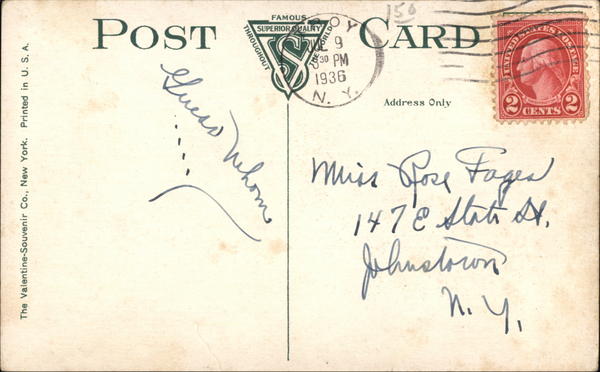 POST CARD
FAMOUS
SUPERIOR QUALITY
THROUGHOUT THE WORLD
VS
TROY
9
30 PM
1936
N. Y.
150
UNITED STATES POSTAGE
2 CENTS 2
Address Only
Guess Whom
Miss Rose Fagen
147 E State St.
Johnstown
N. Y.
The Valentine-Souvenir Co., New York. Printed in U. S. A.